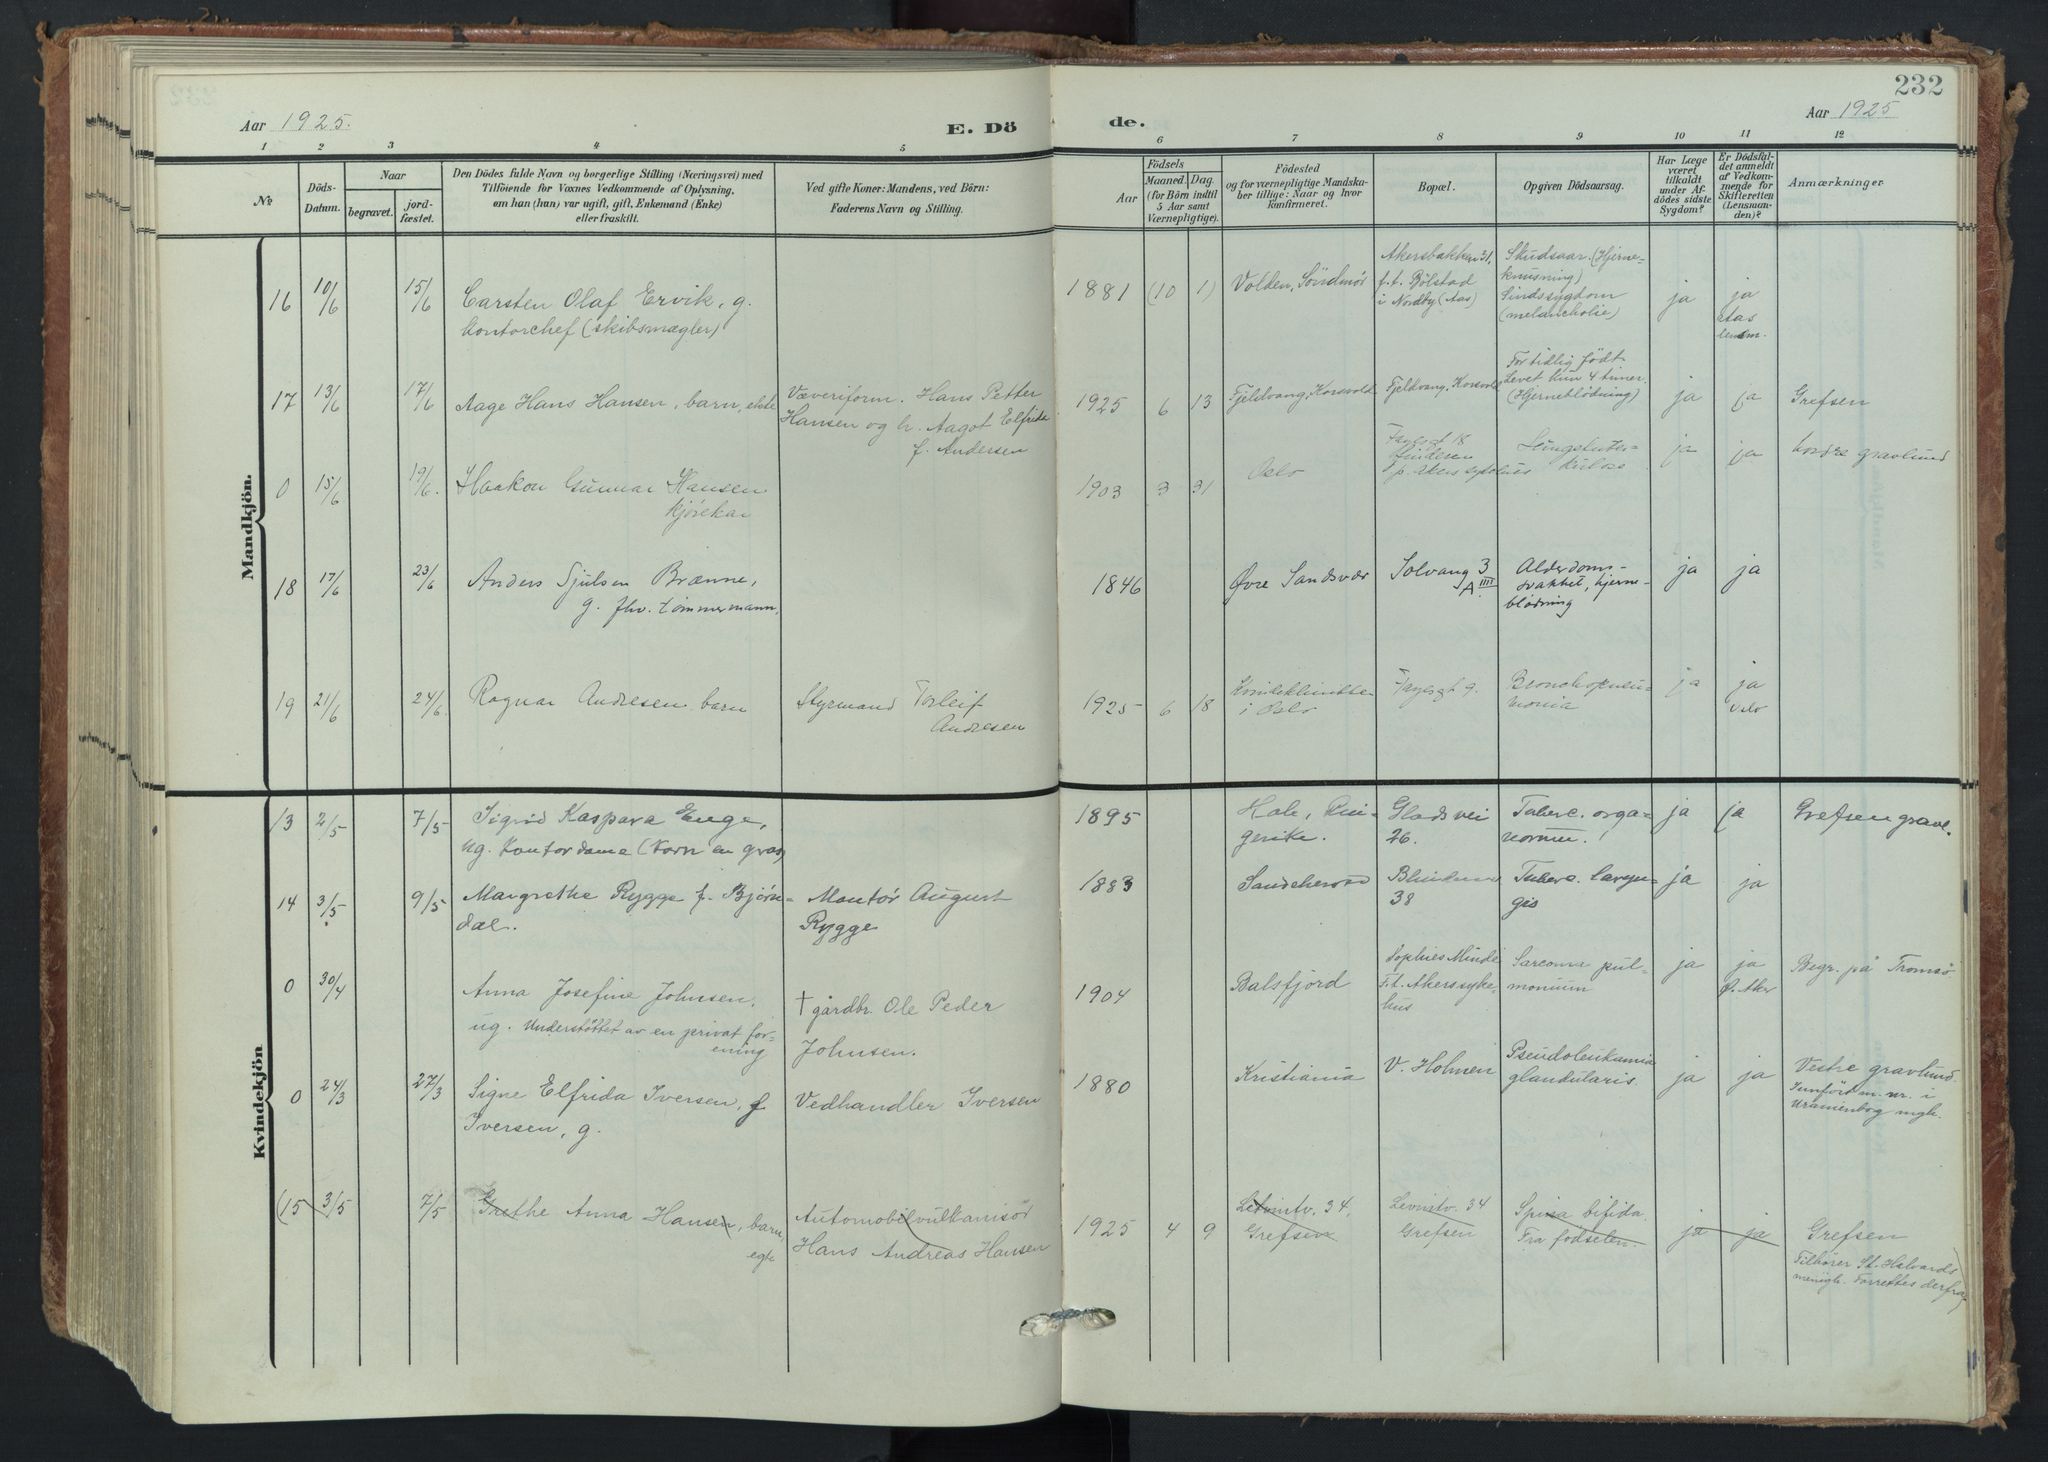 232
Aar 1925.
E. Dö
de.
Aar 1925
1 2 3 4 5 6 7 8 9 10 11 12
№
Döds-
Datum.
Naar
begravet.
jord-
fæstet.
Den Dödes fulde Navn og borgerlige Stilling (Næringsvei) med
Tilföiende for Voxnes Vedkommende af Oplysning,
om han (hun) var ugift, gift, Enkemand (Enke)
eller fraskilt.
Ved gifte Koner: Mandens, ved Börn:
Faderens Navn og Stilling.
Födsels
Aar
Maaned. Dag.
(for Börn indtil
5 Aar samt
Værnepligtige).
Födested
og for værnepligtige Mandska-
ber tillige: Naar og hvor
konfirmeret.
Bopæl.
Opgiven Dödsaarsag.
Har Læge
været
tilkaldt
under Af-
dödes sidste
Sygdom?
Er Dödsfal-
det anmeldt
af Vedkom-
mende for
Skifteretten
(Lensman-
den)?
Anmærkninger
Mandkjön.
16 10/6 15/6 Carsten Olaf Ervik, g.
kontorchef (skibsmægler)
1881 (10 1) Volden, Söndmör
Akersbakken 31.
f.t. Bölstad
i Nordby (Aas)
Skudsaar. (Hjerne-
knusning)
Sindssygdom
(melancholie)
ja
ja
Aas
lensm.
17 13/6 17/6 Aage Hans Hansen, barn, ekte
Væveriform. Hans Petter
Hansen og h. Aagot Elfrida
f. Andersen
1925 6 13 Fjeldvang, Korsvold
Fjeldvang, Korsvold
For tidlig født
Levet kun 4 timer.
(Hjerneblödning)
ja ja Grefsen
0 15/6 19/6. Haakon Gunnar Hansen
kjörekar
1903 3 31 Oslo
18
Lungetuber-
kulose
ja ja nordre gravlund
18 17/6 23/6 Anders Tjulsen Brænne,
g. fhv. tömmermann.
1846 Øvre Sandsvær
Solvang 3
A IIII
Alderdoms-
svakhet, hjerne-
blödning
ja ja
19 21/6 24/6. Ragnar Andresen barn
Styrmand Torleif
Andresen
1925 6 18 Kvindeklinikken
i Oslo
Fayesgt 9.
Bronchopneu-
monia
ja
ja
Oslo
Kvindekjön
13 2/5 7/5 Sigrid Kaspara Enge,
ug. Kontordame (Korn en gros)
1895 Hole, Rin-
gerike.
Gladsvei
26.
Tuberc. orga-
norum.
ja ja Grefsen gravl.
14 3/5 9/5 Margrethe Rygge f. Bjørn-
dal.
Montør August
Rygge
1883 Sandeherred
Blindern
38
Tuberc. laryn-
gis
ja ja
0 30/4 Anna Josefine Johnsen,
ug. Understöttet av en privat for-
ening
† gårdbr. Ole Peder
Johnsen.
1904 Balsfjord
Sophies Minde
F.t. Akers syke-
hus
Sarcoma pul-
monum
ja
ja
Ø. Aker
Begr. på Tromsö
0 24/3 27/3 Signe Elfrida Iversen, f
Iversen, g.
Vedhandler Iversen
1880 Kristiania
V. Holmen
Pseudoleukæmia
glandularis.
ja ja
Vestre gravlund.
Innfört m. nr. i
Uranienborg mgh.
(15 3/5 7/5 Grethe Anna Hansen, barn,
egte
Automobilvulkanisör
Hans Andreas Hansen
1925 4 9
34.
Grefsen
34
Grefsen
Spina bifida.
Fra fødselen.
ja ja
Grefsen
Tilhörer St. Halvards
menigh. Forrettes derfra)